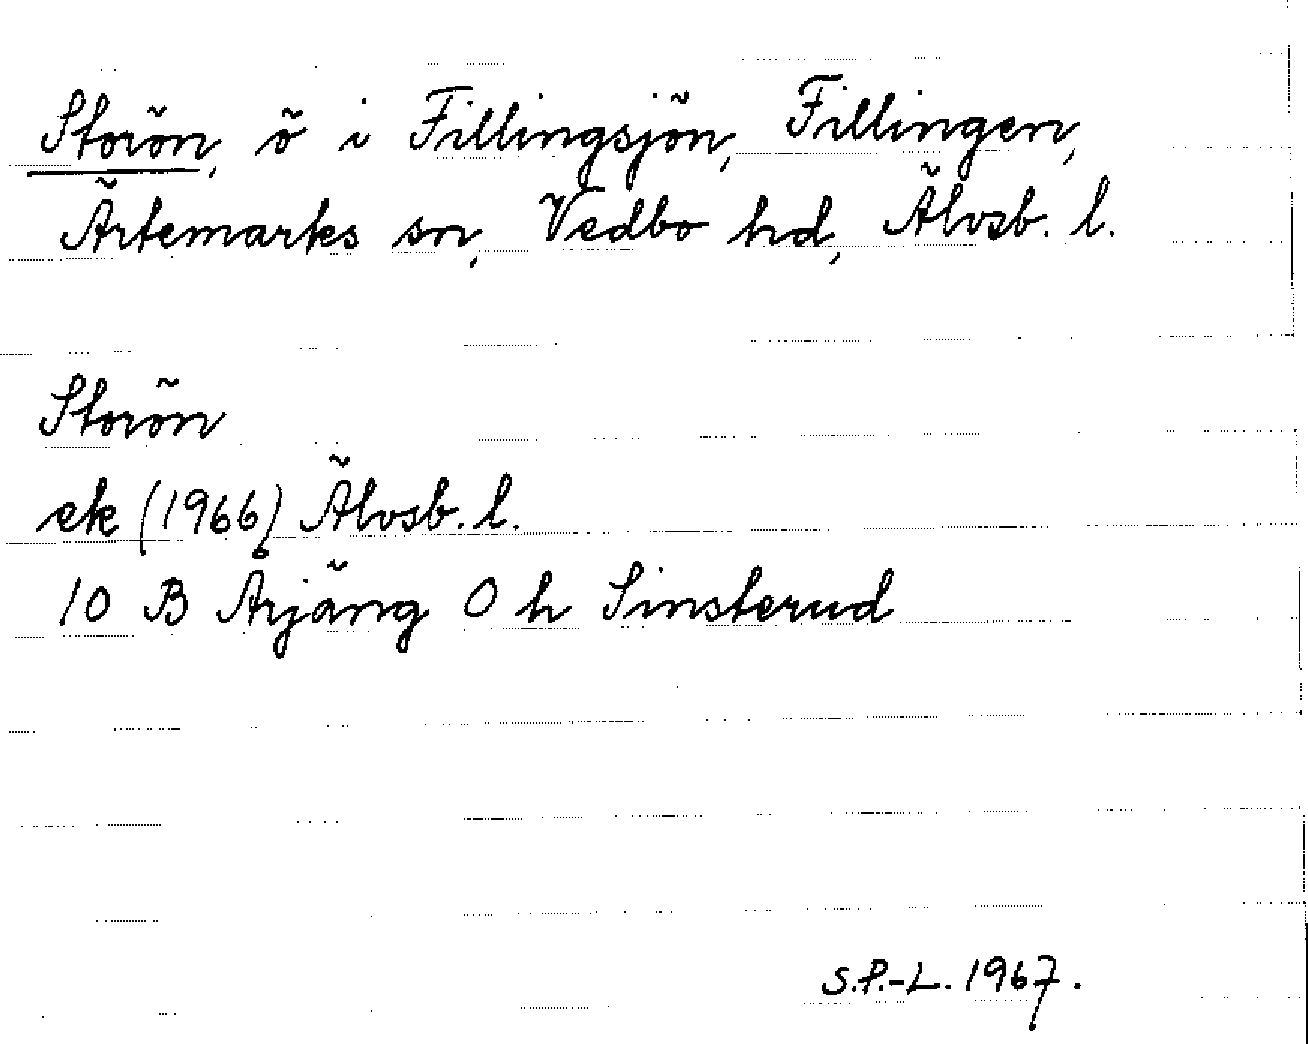 Storön, ö i Fillingsjön, Fillingen,
Ärtemarks sn, Vedbo hd, Älvsb. l.
Storön
ek (1966) Älvsb. l.
10 B Årjäng 0 h Sinsterud
S.P.-L. 1967.